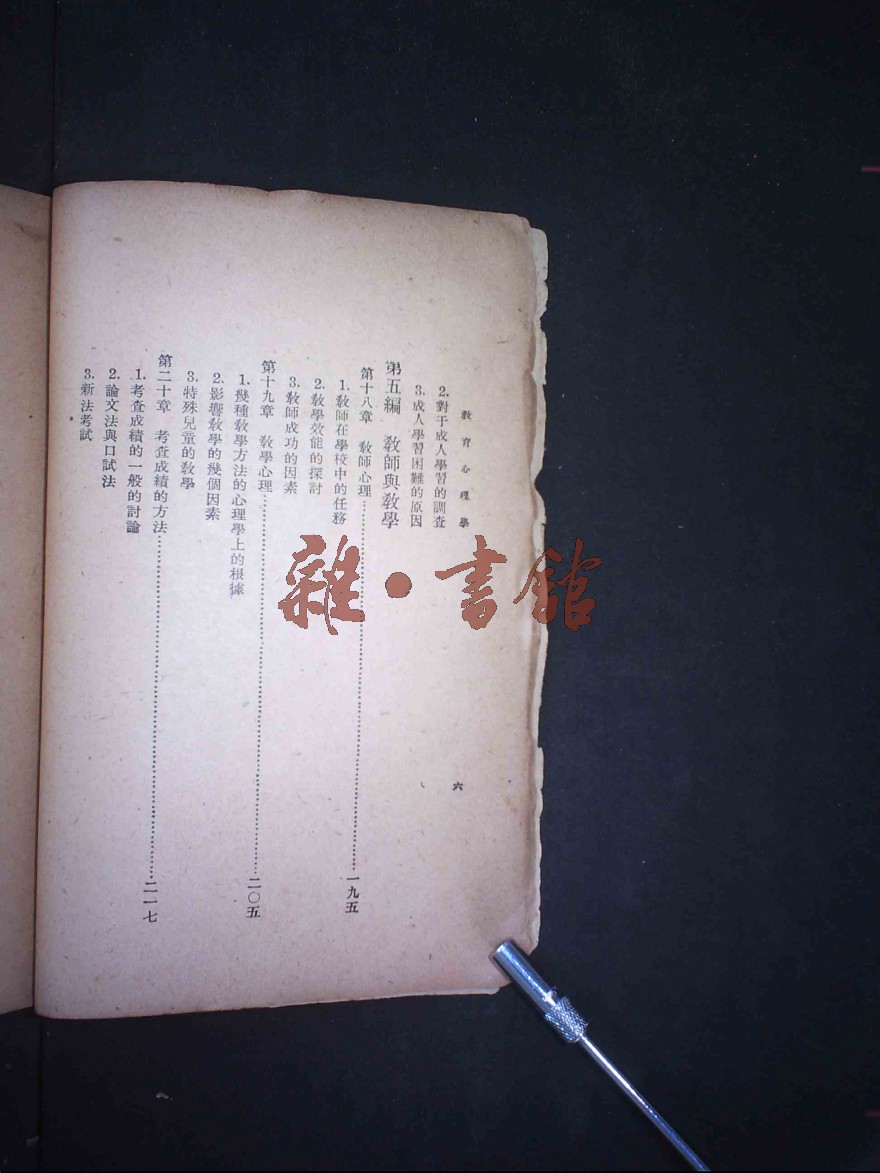 教育心理學
六
2. 對于成人學習的調查
3. 成人學習困難的原因
第五編　教師與教學
第十八章　教師心理……一九五
1. 教師在學校中的任務
2. 教學效能的探討
3. 教師成功的因素
第十九章　教學心理……二〇五
1. 幾種教學方法的心理學上的根據
2. 影響教學的幾個因素
3. 特殊兒童的教學
第二十章　考查成績的方法……二一七
1. 考查成績的一般的討論
2. 論文法與口試法
3. 新法考試
雜·書館